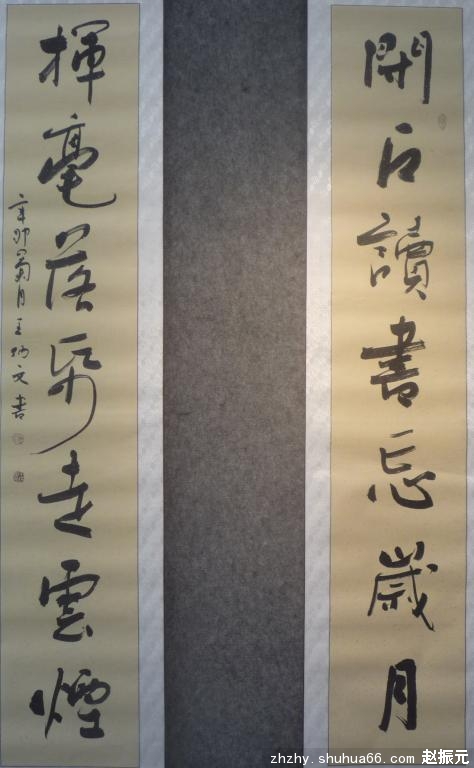 開户讀書忘歲月
揮毫落紙走雲煙
辛卯菊月王炳文書
zhzhy.shuhua66.com 赵振元